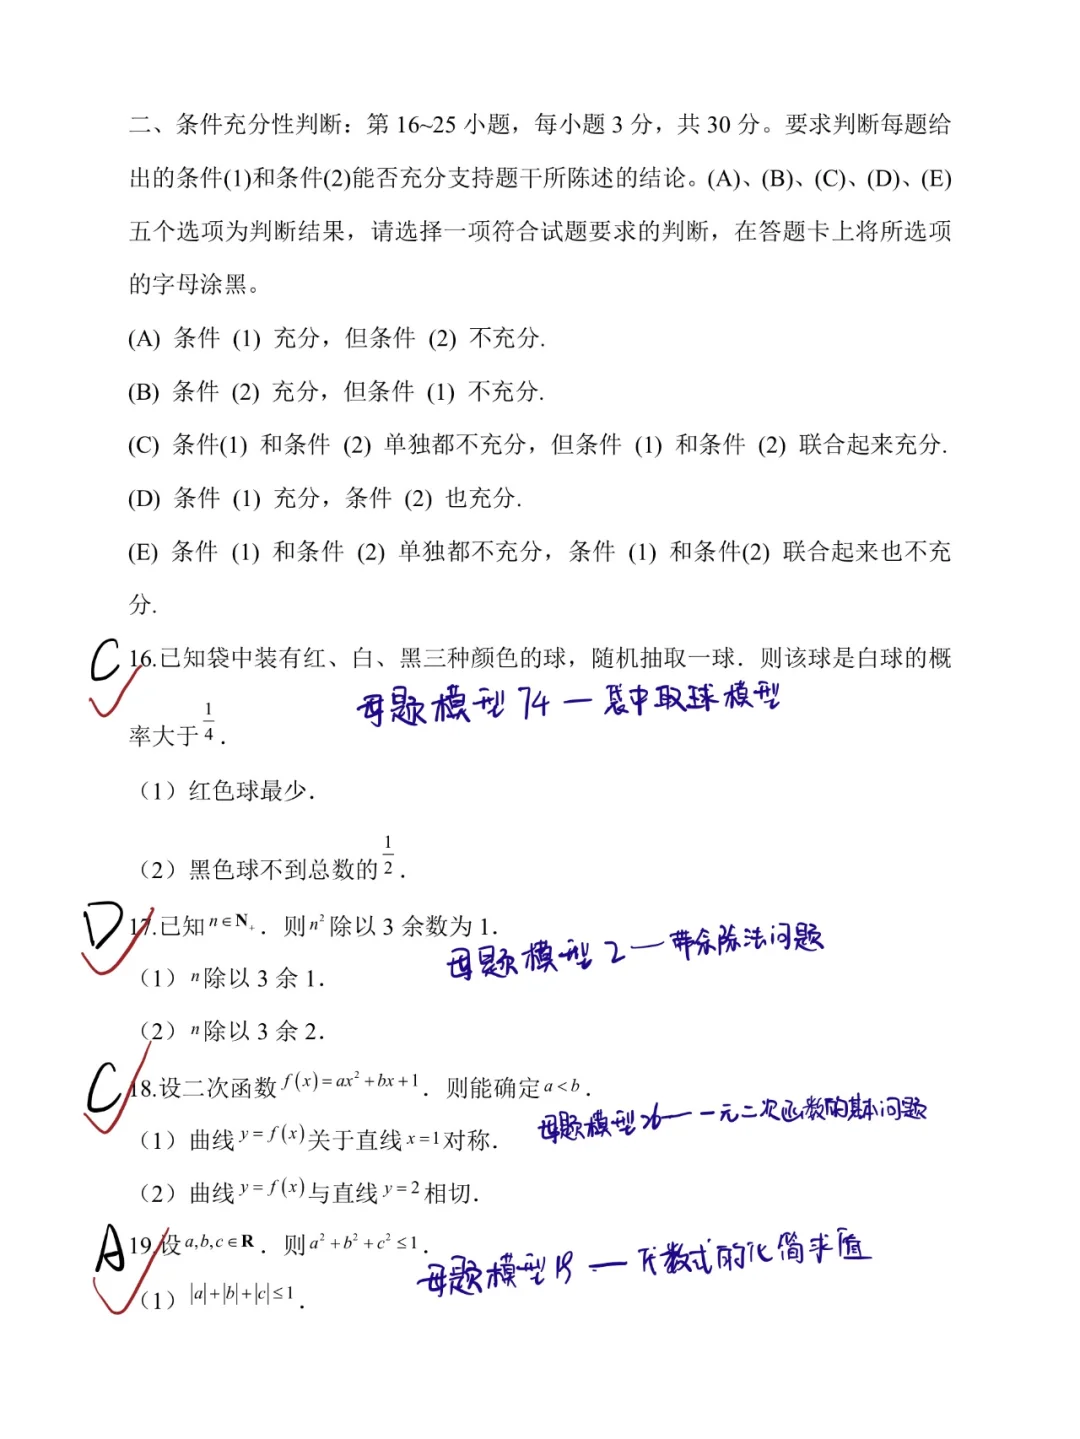 二、条件充分性判断：第 16~25 小题，每小题 3 分，共 30 分。要求判断每题给
出的条件(1)和条件(2)能否充分支持题干所陈述的结论。(A)、(B)、(C)、(D)、(E)
五个选项为判断结果，请选择一项符合试题要求的判断，在答题卡上将所选项
的字母涂黑。
(A) 条件 (1) 充分，但条件 (2) 不充分.
(B) 条件 (2) 充分，但条件 (1) 不充分.
(C) 条件(1) 和条件 (2) 单独都不充分，但条件 (1) 和条件 (2) 联合起来充分.
(D) 条件 (1) 充分，条件 (2) 也充分.
(E) 条件 (1) 和条件 (2) 单独都不充分，条件 (1) 和条件(2) 联合起来也不充
分.
C 16.已知袋中装有红、白、黑三种颜色的球，随机抽取一球．则该球是白球的概
母题模型 74 — 袋中取球模型
率大于 1/4．
（1）红色球最少．
（2）黑色球不到总数的 1/2．
D 17.已知 n∈N₊．则 n² 除以 3 余数为 1．
母题模型 2 — 带余除法问题
（1）n 除以 3 余 1．
（2）n 除以 3 余 2．
C 18.设二次函数 f(x)=ax²+bx+1．则能确定 a<b．
母题模型 26 — 一元二次函数的基本问题
（1）曲线 y=f(x) 关于直线 x=1 对称．
（2）曲线 y=f(x) 与直线 y=2 相切．
A 19.设 a,b,c∈R．则 a²+b²+c²≤1．
母题模型 18 — 代数式的化简求值
（1）|a|+|b|+|c|≤1．